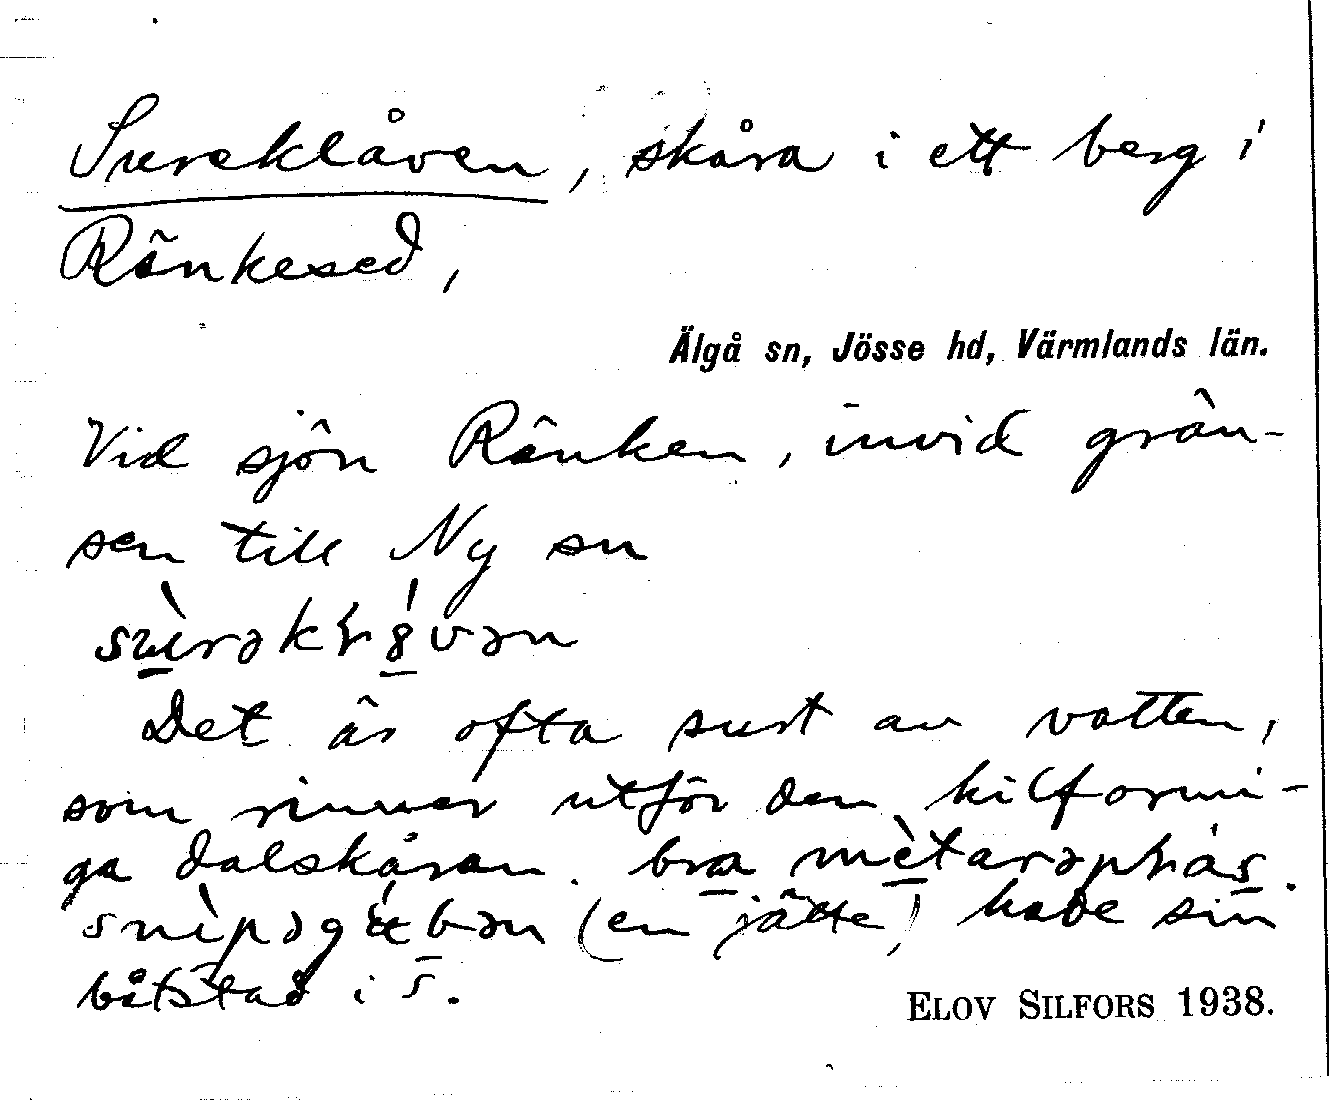 Sureklåven, skåra i ett berg i
Ränkesed,
Älgå sn, Jösse hd, Värmlands län.
Vid sjön Ränken, invid grän-
sen till Ny sn
Det är ofta surt av vatten,
som rinner utför den kilformi-
ga dalskåran. bra
(en jätte) hade sin
båtstad i S.
ELOV SILFORS 1938.